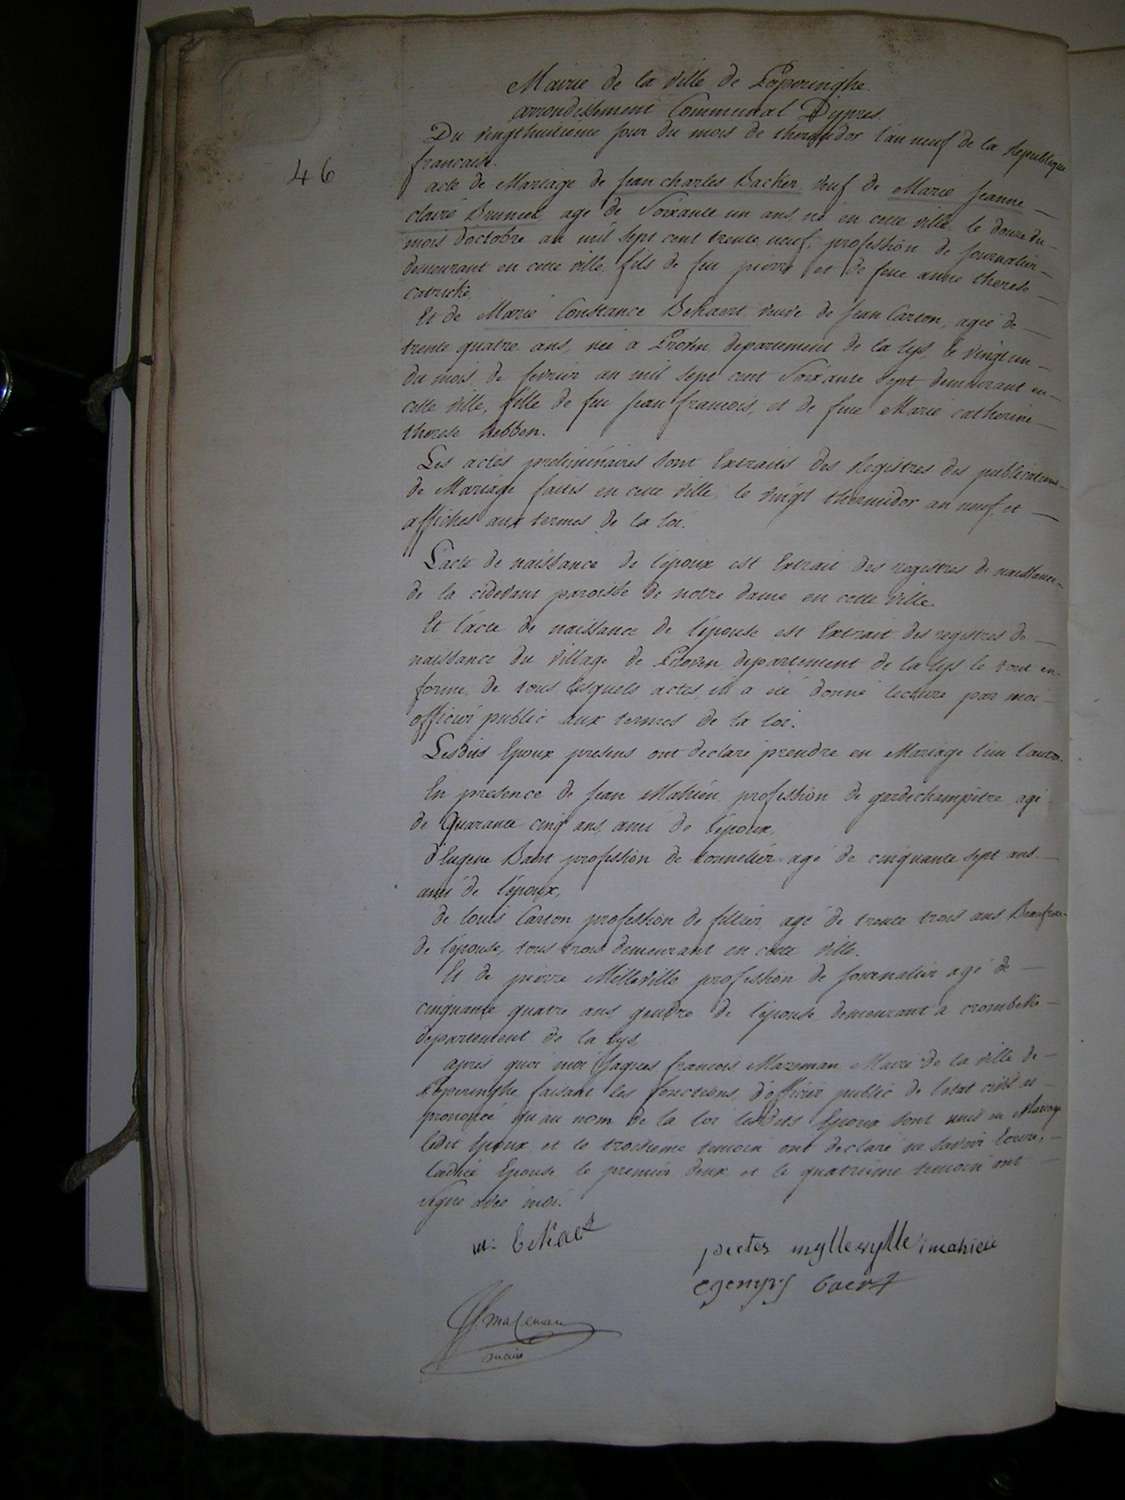 Mairie de la ville de Poperinghe
arrondissement Communal Dypres
Du vingthuitieme jour du mois de thermidor l'an neuf de la Republique
francaise.
46
acte de Mariage de jean charles Backer veuf de Marie jeanne
claire Brunien, agé de Soixante un ans né en cette ville le douze du
mois d'octobre an mil sept cent trente neuf, profession de journalier
demeurant en cette ville, fils de feu pierre et de feue anne therese
catriche,
Et de Marie Constance Behaut veuve de jean Carton, agée de
trente quatre ans, née a Proven departement de la lys, le vingt un
du mois de fevrier an mil sept cent Soixante Sept demeurant en
cette ville, fille de feu jean francois, et de feue Marie catherine
therese Hebben.
Les actes preliminaires Sont Extraits des Registres des publications
de Mariage faites en cette ville le vingt thermidor an neuf, et
affiches aux termes de la loi.
L'acte de naissance de l'époux est Extrait des registres de naissance
de la cidevant paroisse de notre dame en cette ville.
Et l'acte de naissance de l'épouse est Extrait des registres de
naissance du village de Proven departement de la lys le tout en
forme, de tous lesquels actes il a été donné lecture par moi
officier public aux termes de la loi.
Lesdits Epoux presens ont declaré prendre en Mariage l'un l'autre
En presence de jean Mahieu profession de gardechampêtre agé
de Quarante cinq ans, ami de l'époux,
d'Eugene Baert profession de tonnelier agé de cinquante sept ans
ami de l'époux,
de louis Carton profession de fillier agé de trente trois ans Beaufrere
de l'épouse, tous trois demeurant en cette ville.
Et de pierre Melleville profession de journalier agé de
cinquante quatre ans gendre de l'épouse demeurant a crombeke
departement de la Lys
après quoi moi jaques francois Mazeman Maire de la ville de
Poperinghe faisant les fonctions d'officier public de l'etat civil ai
prononcé qu'au nom de la loi lesdits Epoux Sont unis en Mariage
ledit Epoux et le troisieme temoin ont declaré ne Savoir Ecrire,
ladite Epouse le premier deux et le quatrieme temoin ont
signé avec moi.
m: C behaet
pieter myllevylle i mahieu
egenyys baert
J. F. mazeman
maire